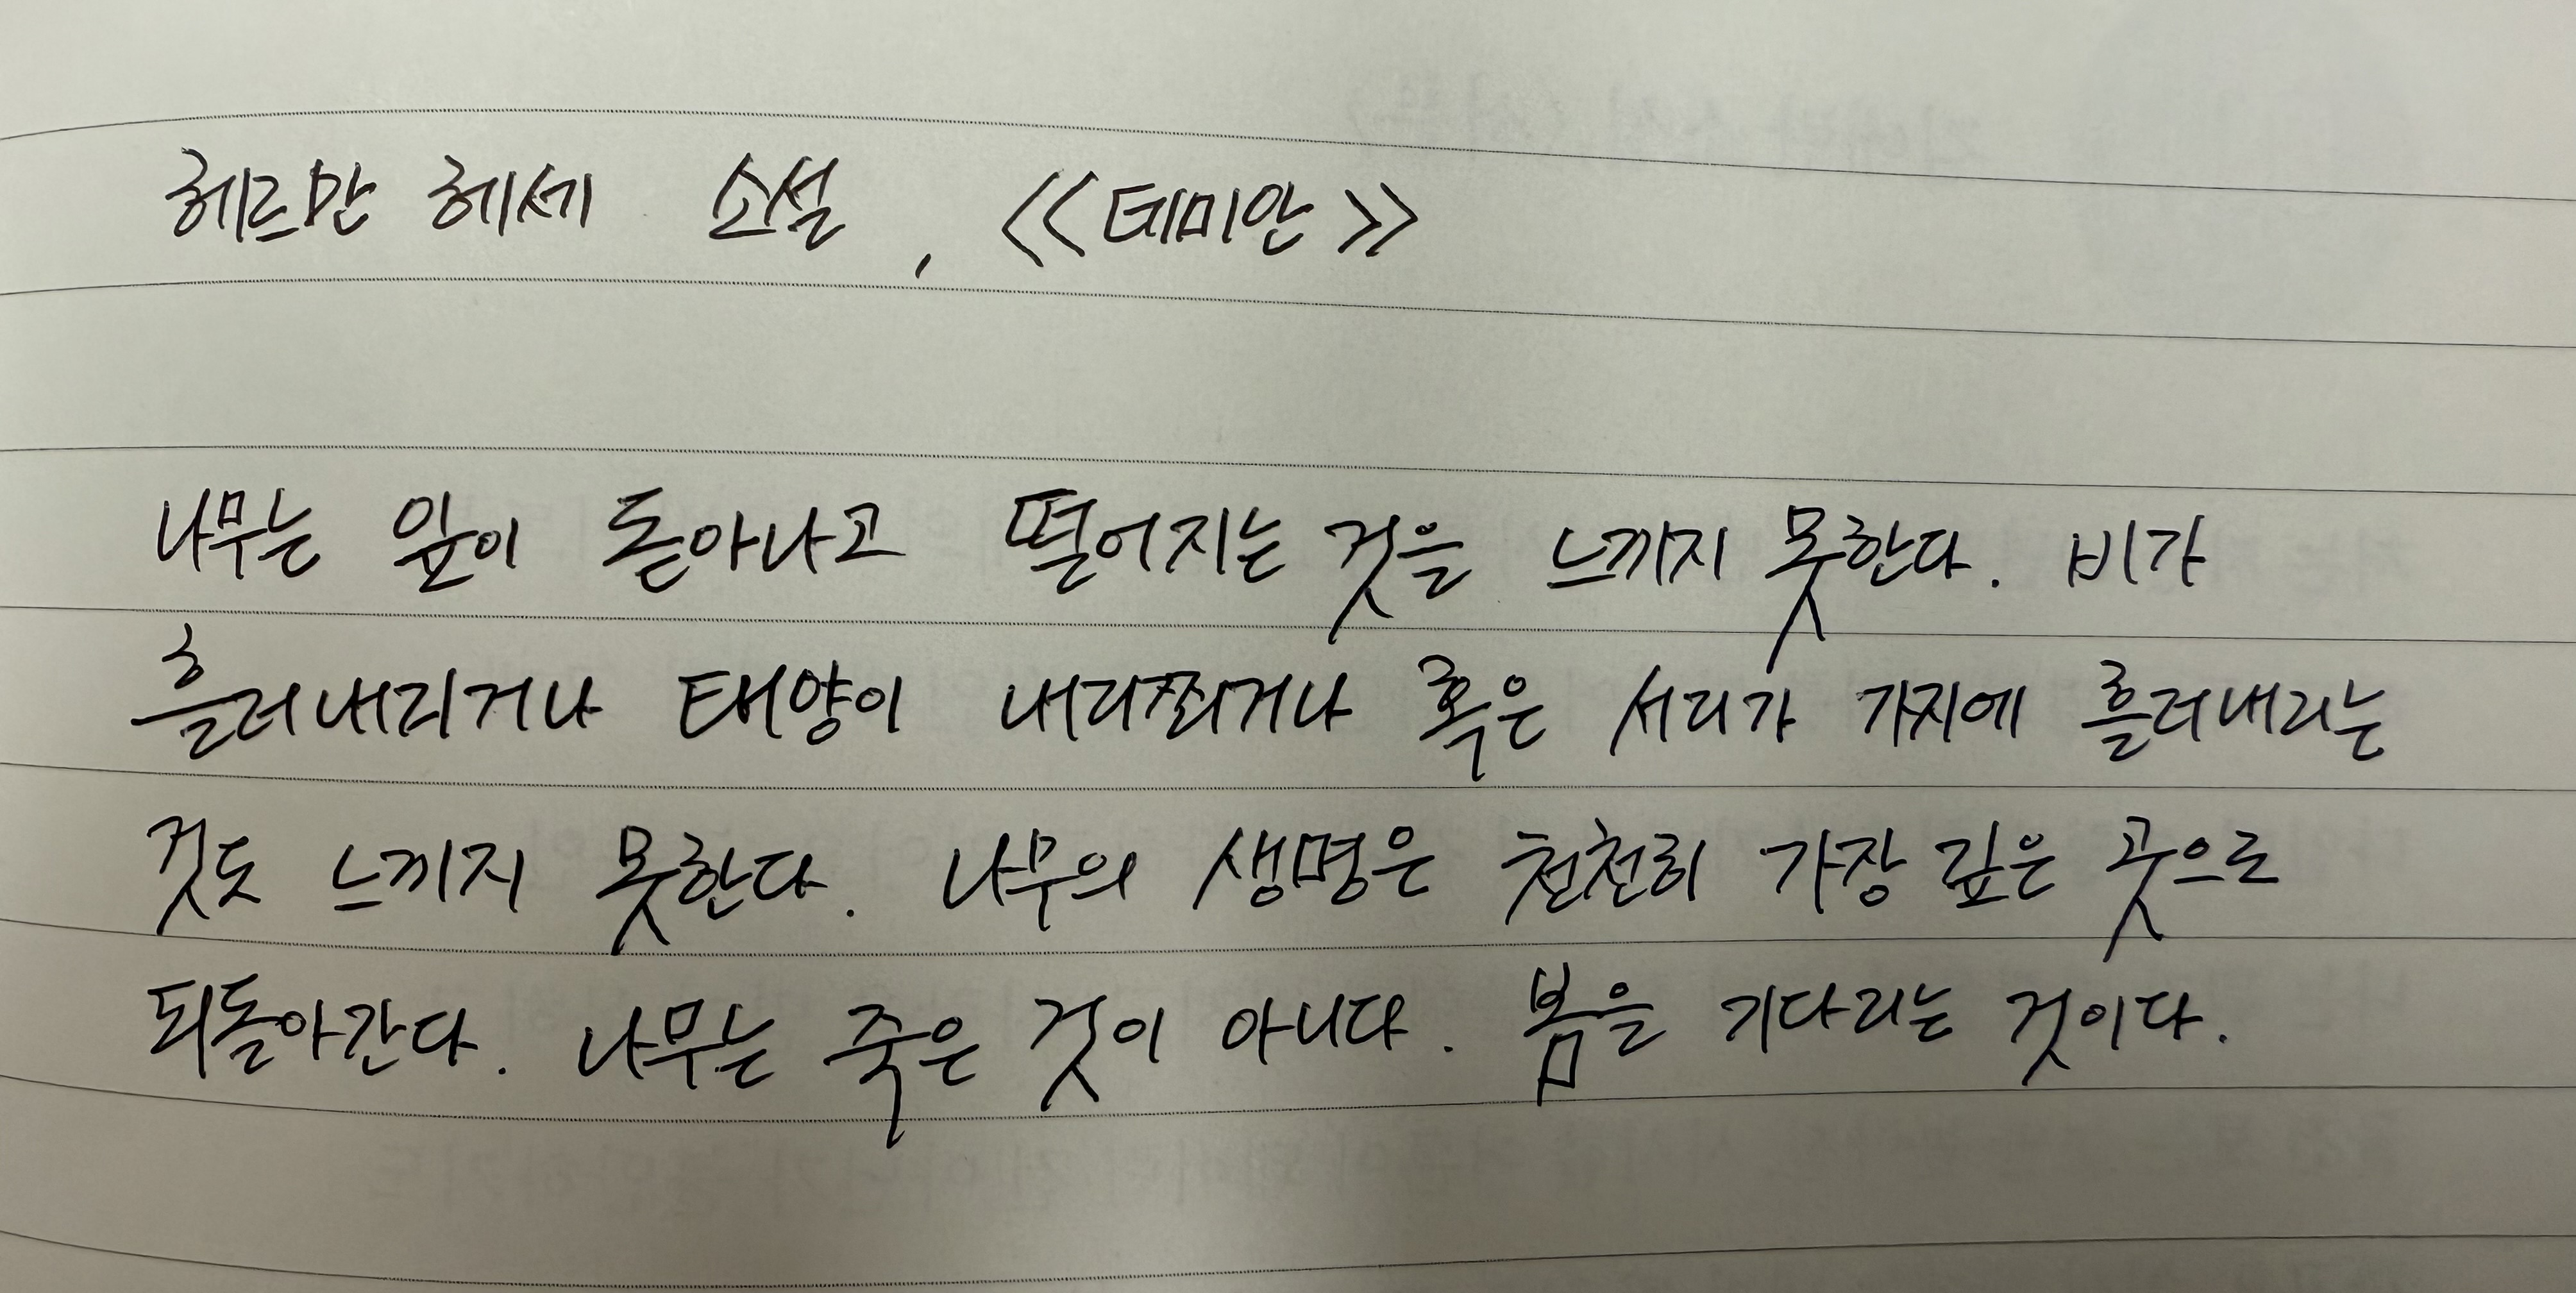 헤르만 헤세 소설, <<데미안>>
나무는 잎이 돋아나고 떨어지는 것을 느끼지 못한다. 비가
흘러내리거나 태양이 내리쬐거나 혹은 서리가 가지에 흘러내리는
것도 느끼지 못한다. 나무의 생명은 천천히 가장 깊은 곳으로
되돌아간다. 나무는 죽은 것이 아니다. 봄을 기다리는 것이다.